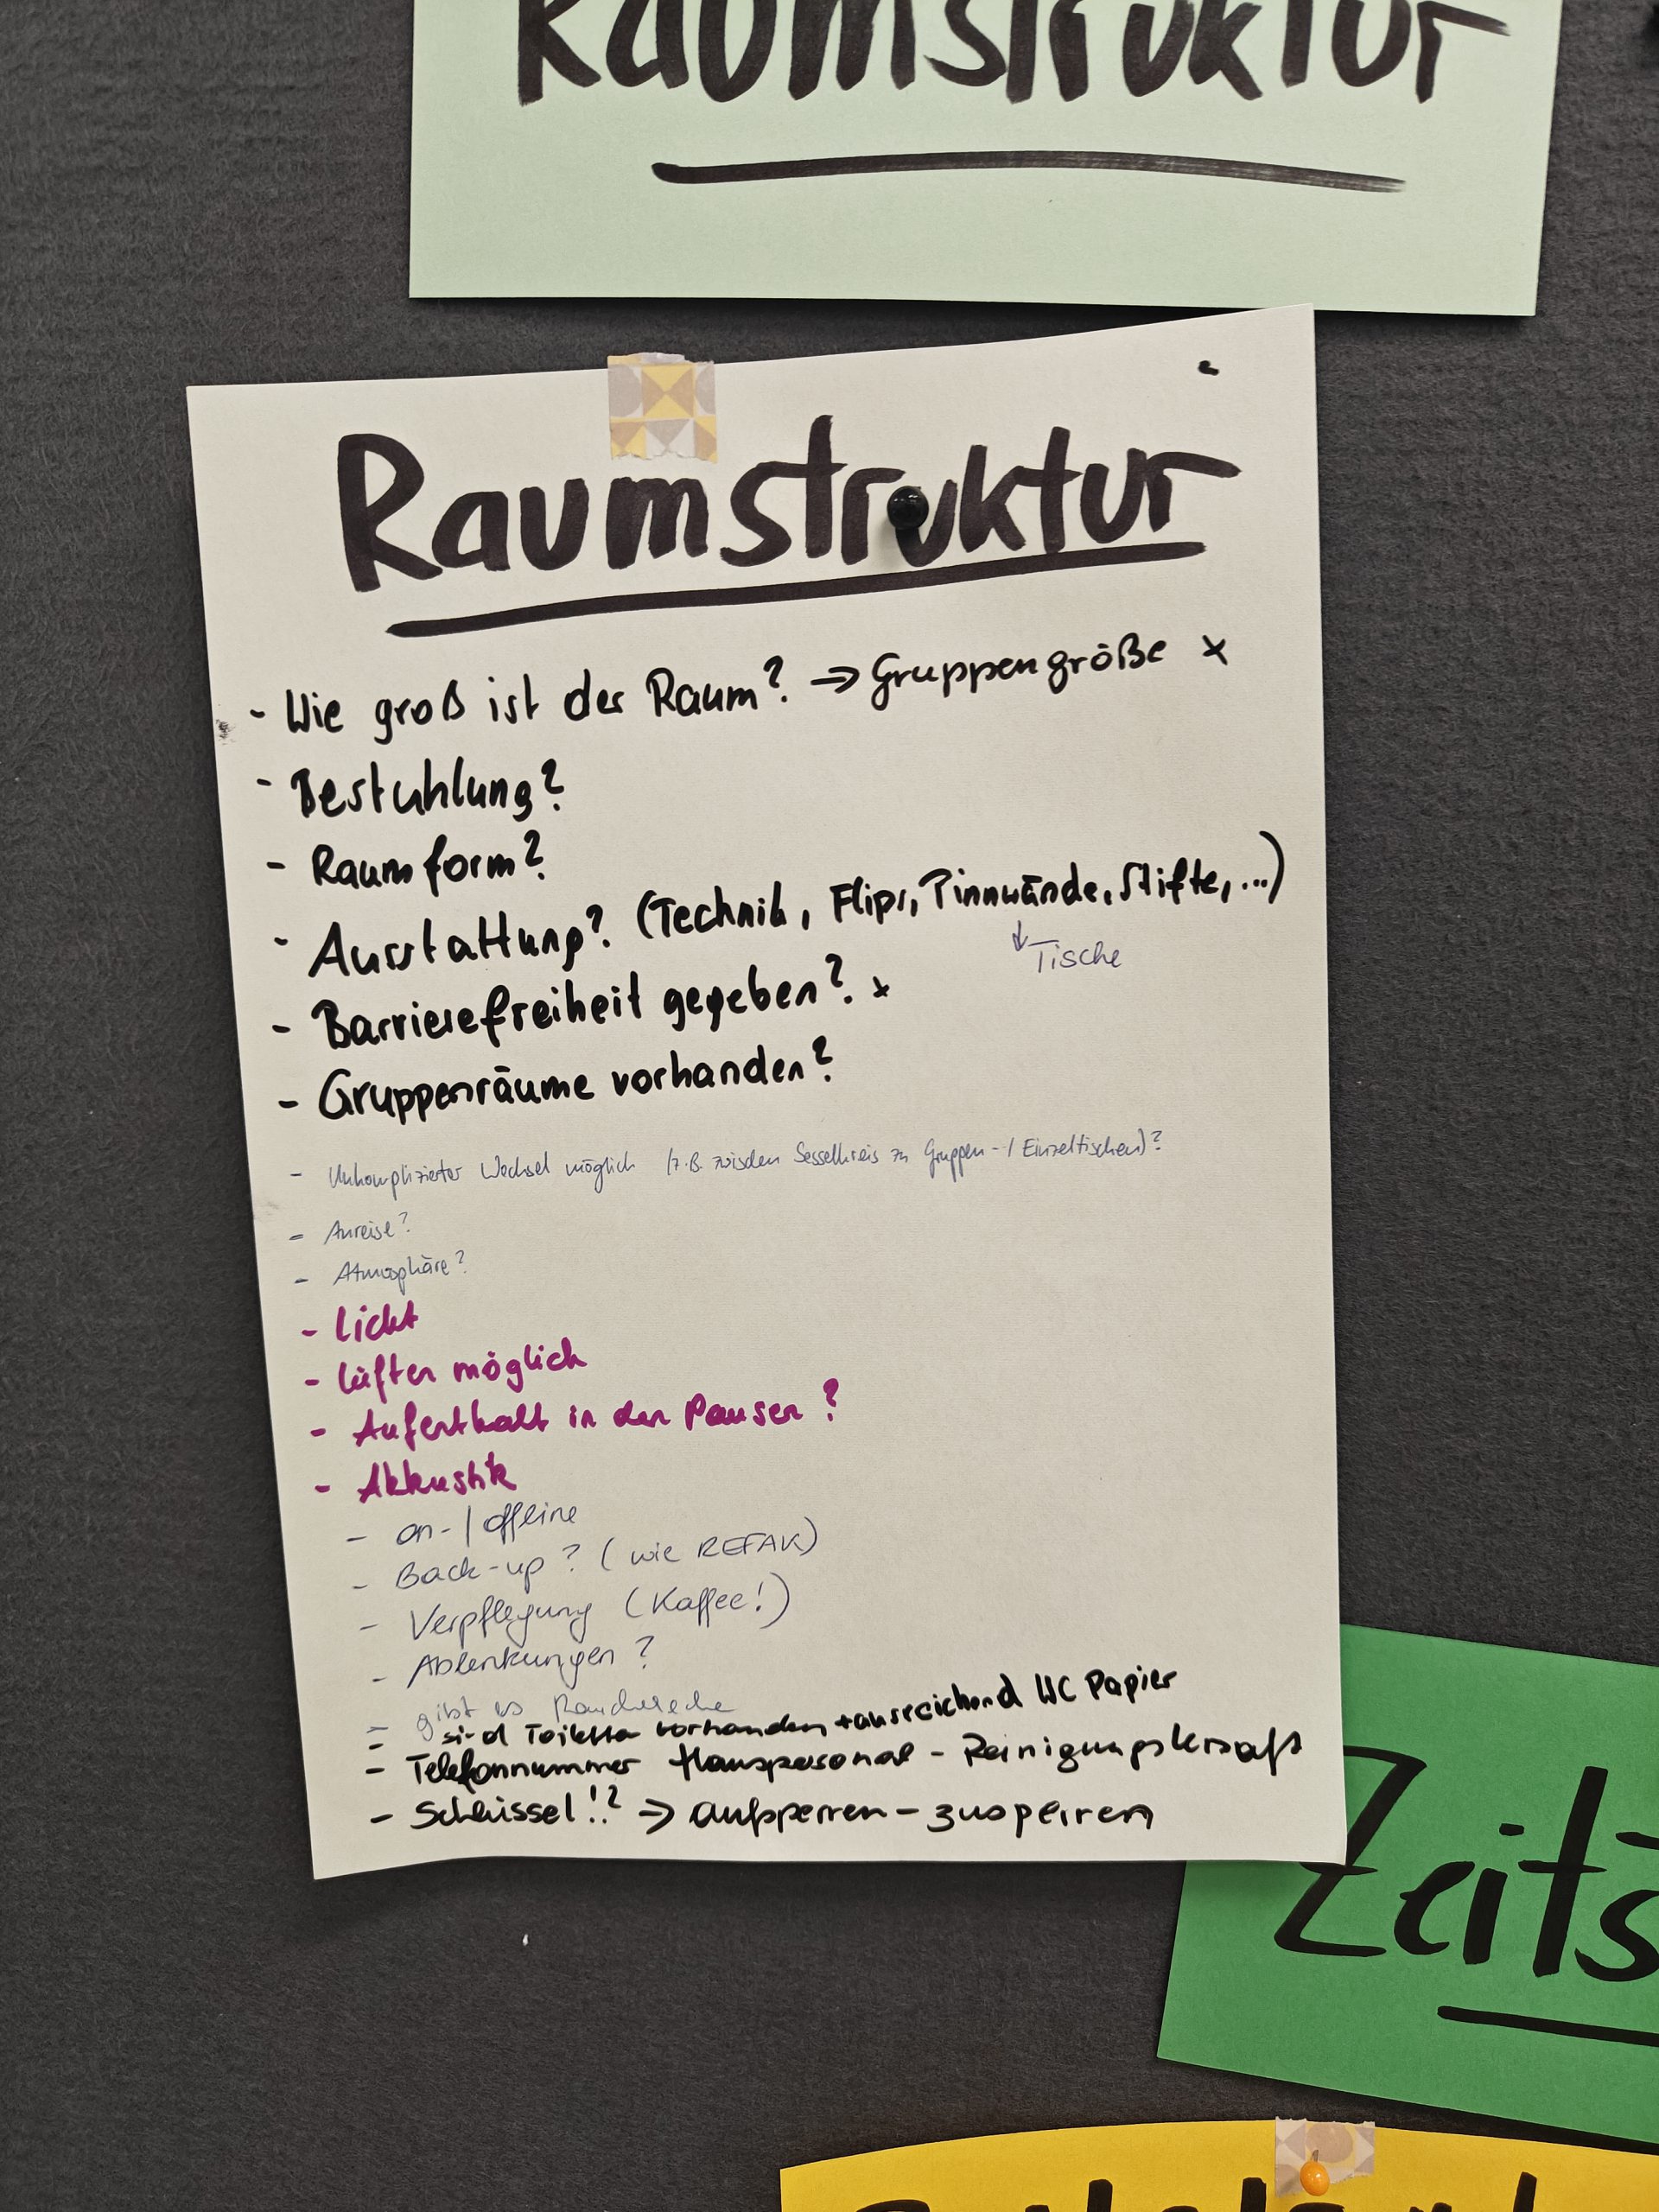 Raumstruktur
Raumstruktur
- Wie groß ist der Raum? → Gruppengröße x
- Bestuhlung?
- Raumform?
- Ausstattung? (Technik, Flips, Pinnwände, Stifte, ...)
↓ Tische
- Barrierefreiheit gegeben? x
- Gruppenräume vorhanden?
- Unkomplizierter Wechsel möglich (z.B. zwischen Sesselkreis zu Gruppen-/Einzeltischen)?
- Anreise?
- Atmosphäre?
- Licht
- lüften möglich
- Aufenthalt in den Pausen?
- Akkustik
- on-/offline
- Back-up? (wie REFAK)
- Verpflegung (Kaffee!)
- Ablenkungen?
- gibt es
- sind Toiletten vorhanden + ausreichend WC Papier
- Telefonnummer Hauspersonal - Reinigungskraft
- Schlüssel!? → aufsperren - zusperren
Zeits